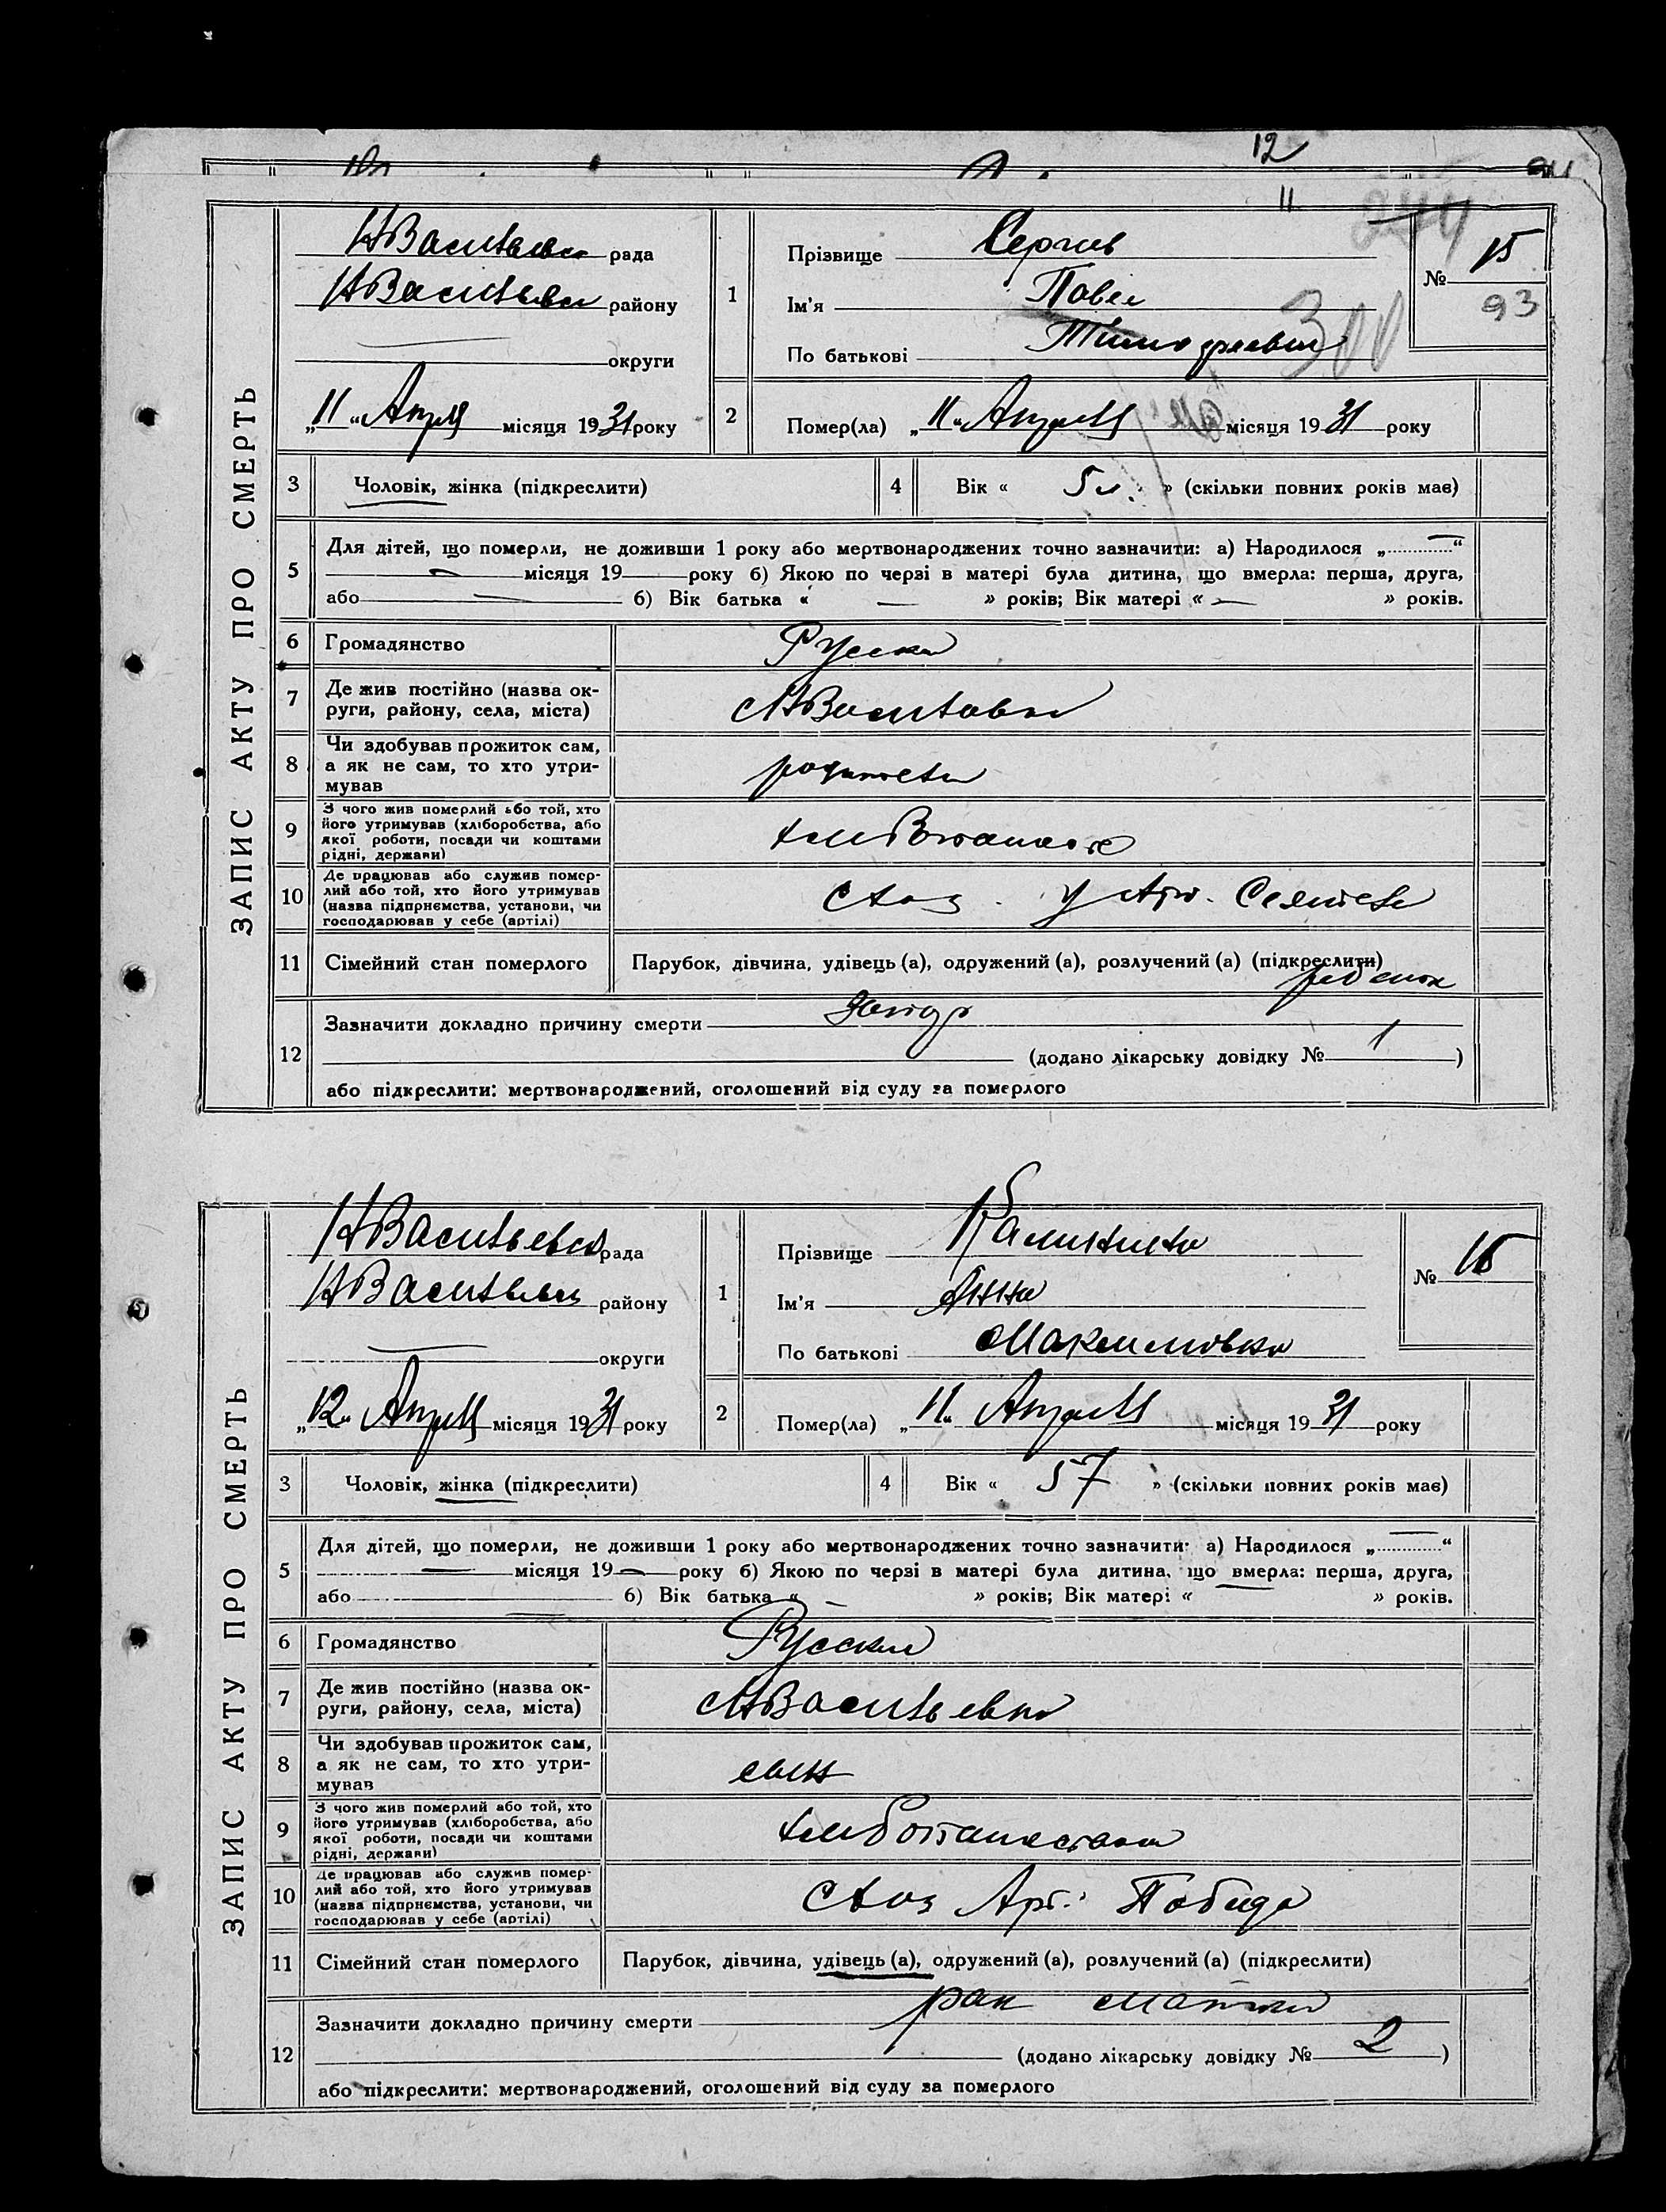 12
11
ЗАПИС АКТУ ПРО СМЕРТЬ
НВасильевск рада
НВасильевск району
округи
„11“ Апреля місяця 1931 року
1
Прізвище Сергиев
Ім'я Павел
По батькові Тимофеевич
300
№ 15
93
2
Помер(ла) „11“ Апреля місяця 1931 року
3 Чоловік, жінка (підкреслити)
4 Вік « 5 л. » (скільки повних років має)
5 Для дітей, що померли, не доживши 1 року або мертвонароджених точно зазначити: а) Народилося „ “
місяця 19 року б) Якою по черзі в матері була дитина, що вмерла: перша, друга,
або б) Вік батька « — » років; Вік матері « — » років.
6 Громадянство Русски
7 Де жив постійно (назва ок-
руги, району, села, міста)
8 Чи здобував прожиток сам,
а як не сам, то хто утри-
мував родители
9 З чого жив померлий або той, хто
його утримував (хліборобства, або
якої роботи, посади чи коштами
рідні, держави)
10 Де працював або служив помер-
лий або той, хто його утримував
(назва підприємства, установи, чи
господарював у себе (артілі) с хоз. у Арт. Сеятель
11 Сімейний стан померлого Парубок, дівчина, удівець (а), одружений (а), розлучений (а) (підкреслити)
ребенок
12 Зазначити докладно причину смерти
(додано лікарську довідку № 1 )
або підкреслити: мертвонароджений, оголошений від суду за померлого
ЗАПИС АКТУ ПРО СМЕРТЬ
НВасильевск рада
НВасильевск району
округи
„12“ Апреля місяця 1931 року
1
Прізвище Калинина
Ім'я Анна
По батькові Максимовна
№ 16
2
Помер(ла) „11“ Апреля місяця 1931 року
3 Чоловік, жінка (підкреслити)
4 Вік « 57 » (скільки повних років має)
5 Для дітей, що померли, не доживши 1 року або мертвонароджених точно зазначити: а) Народилося „ “
місяця 19 року б) Якою по черзі в матері була дитина, що вмерла: перша, друга,
або б) Вік батька « — » років; Вік матері « » років.
6 Громадянство Русская
7 Де жив постійно (назва ок-
руги, району, села, міста) с НВасильевка
8 Чи здобував прожиток сам,
а як не сам, то хто утри-
мував сын
9 З чого жив померлий або той, хто
його утримував (хліборобства, або
якої роботи, посади чи коштами
рідні, держави) хлебопашества
10 Де працював або служив помер-
лий або той, хто його утримував
(назва підприємства, установи, чи
господарював у себе (артілі) с хоз Арт. Победа
11 Сімейний стан померлого Парубок, дівчина, удівець (а), одружений (а), розлучений (а) (підкреслити)
12 Зазначити докладно причину смерти рак матки
(додано лікарську довідку № 2 )
або підкреслити: мертвонароджений, оголошений від суду за померлого